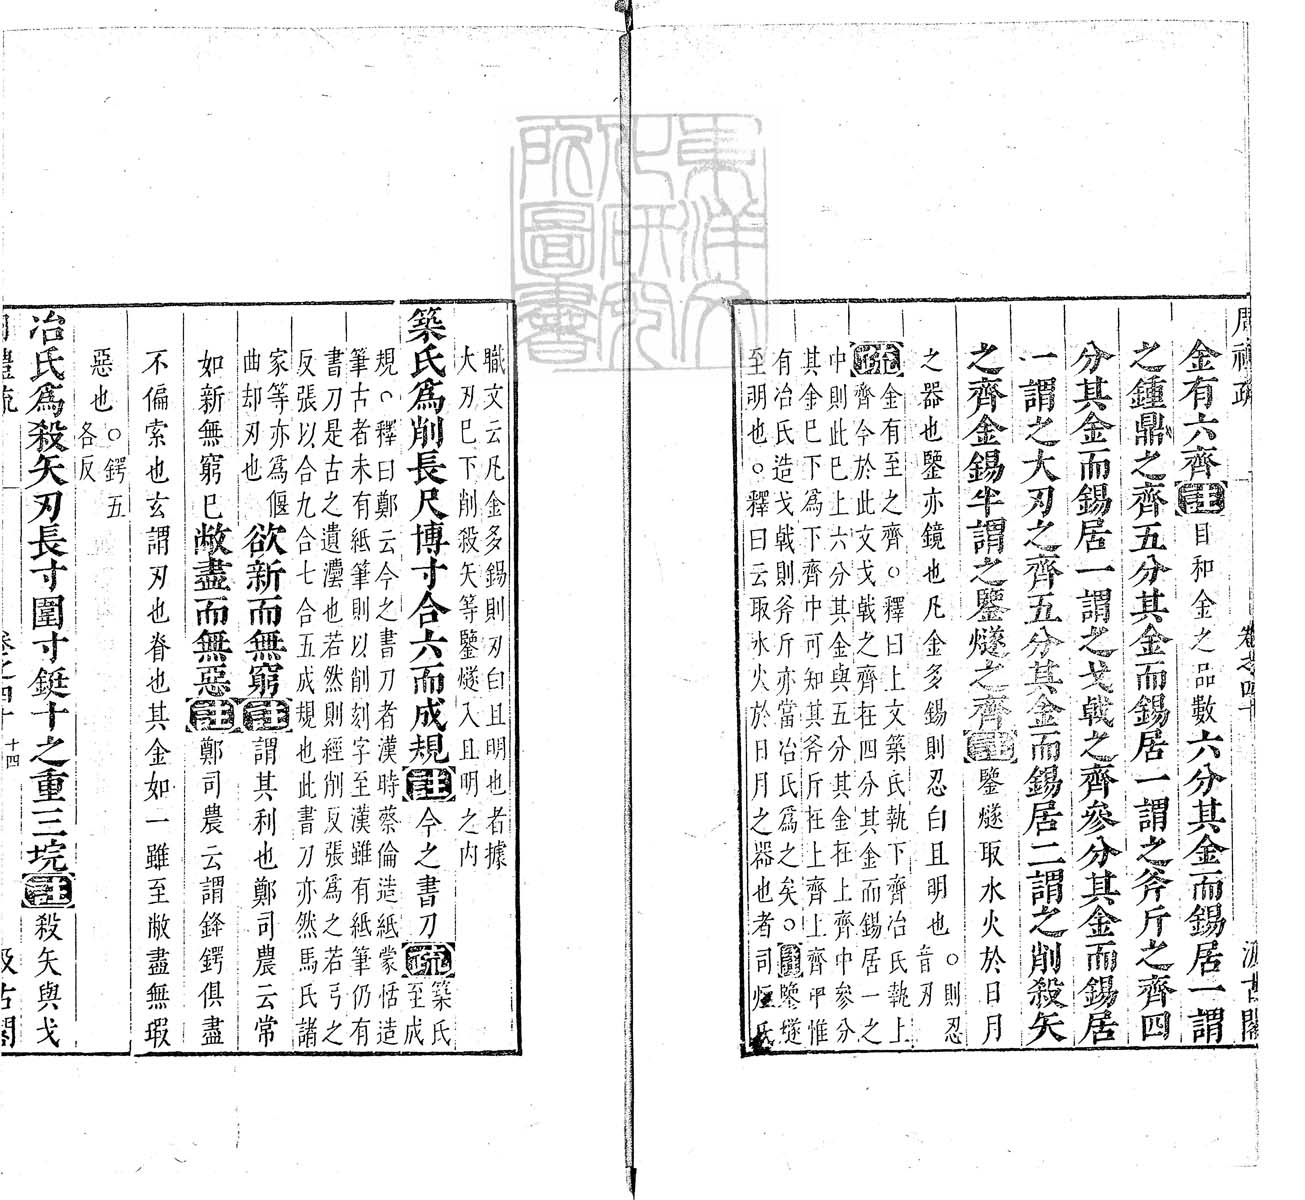 周禮疏 卷之四十 汲古閣
金有六齊註目和金之品數六分其金而錫居一謂
之鍾鼎之齊五分其金而錫居一謂之斧斤之齊四
分其金而錫居一謂之戈戟之齊參分其金而錫居
一謂之大刃之齊五分其金而錫居二謂之削殺矢
之齊金錫半謂之鑒燧之齊註鑒燧取水火於日月
之器也鑒亦鏡也凡金多錫則忍白且明也○則忍
音刃
疏金有至之齊○釋曰上文築氏執下齊冶氏執上
齊今於此文戈戟之齊在四分其金而錫居一之
中則此已上六分其金與五分其金在上齊中參分
其金已下為下齊中可知其斧斤在上齊上齊中惟
有冶氏造戈戟則斧斤亦當冶氏為之矣○註鑒燧
至明也○釋曰云取水火於日月之器也者司烜氏
職文云凡金多錫則刃白且明也者據
大刃已下削殺矢等鑒燧入且明之內
築氏為削長尺博寸合六而成規註今之書刀疏築氏
至成
規○釋曰鄭云今之書刀者漢時蔡倫造紙蒙恬造
筆古者未有紙筆則以削刻字至漢雖有紙筆仍有
書刀是古之遺灋也若然則經削反張為之若弓之
反張以合九合七合五成規也此書刀亦然馬氏諸
家等亦為偃
曲却刃也
欲新而無窮註謂其利也鄭司農云常
如新無窮已敝盡而無惡註鄭司農云謂鋒鍔俱盡
不偏索也玄謂刃也脊也其金如一雖至敝盡無瑕
惡也○鍔五
各反
冶氏為殺矢刃長寸圍寸鋌十之重三垸註殺矢與戈
周禮疏 卷之四十 十四 汲古閣
東洋文
化研究
所圖書